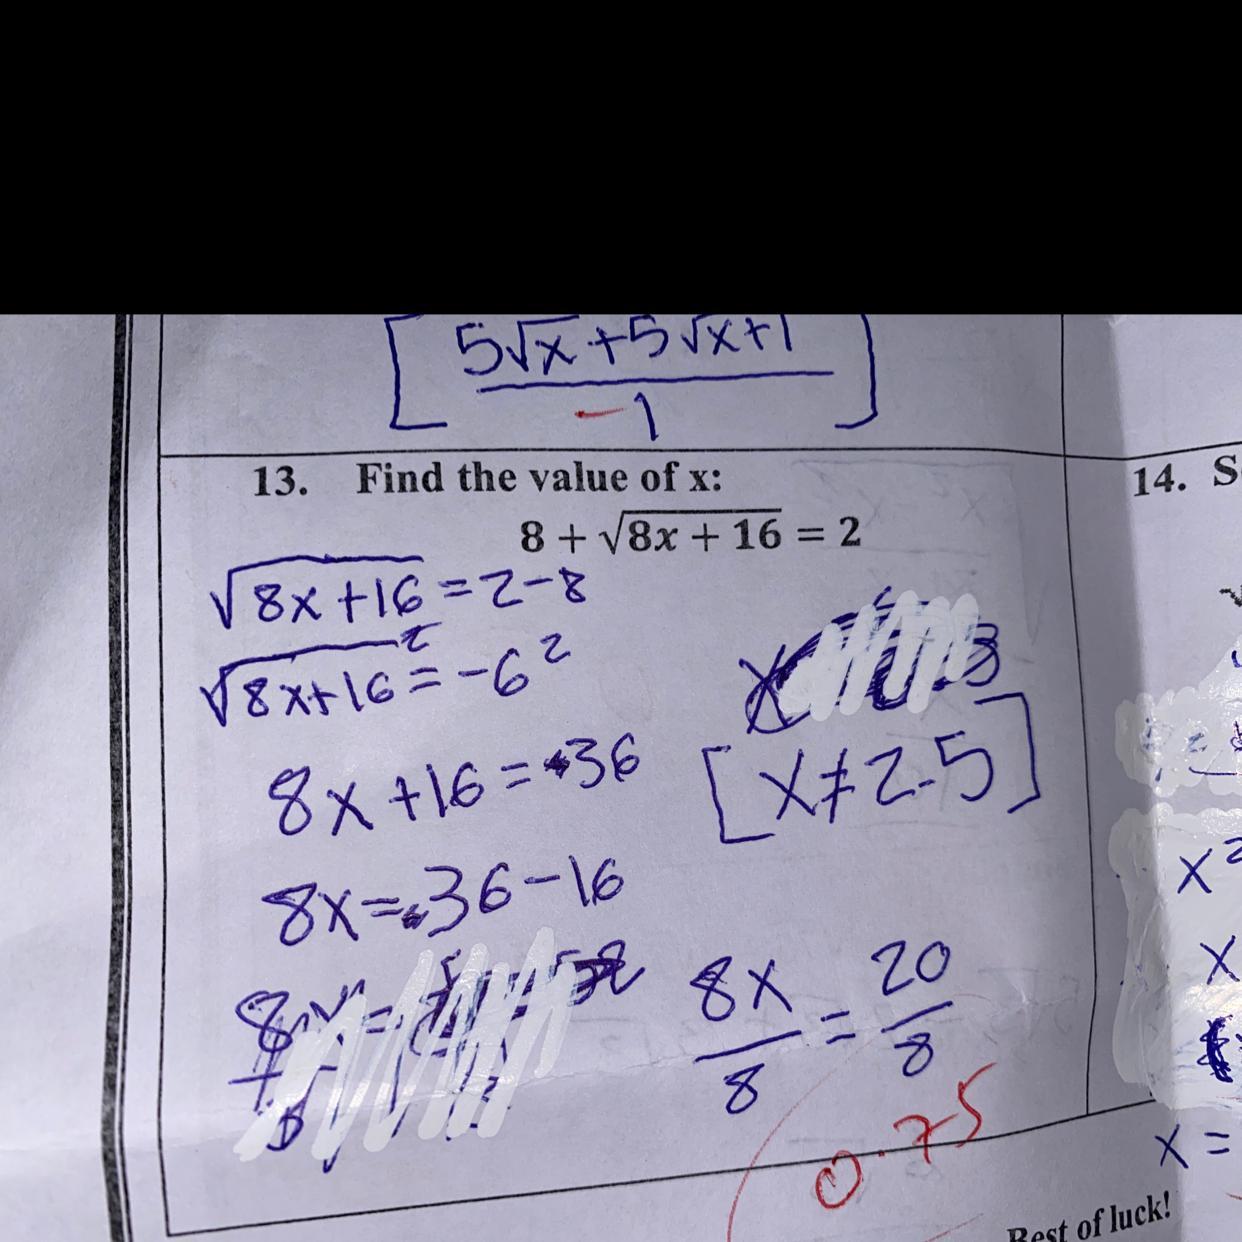 [ 5√x + 5√x+1 / -1 ]
13. Find the value of x:
8 + √8x + 16 = 2
√8x+16 = 2-8
√8x+16² = -6²
8x+16 = 36
8x = 36-16
[x≠2.5]
8x/8 = 20/8
0.75
14. S
x²
x
x =
Best of luck!